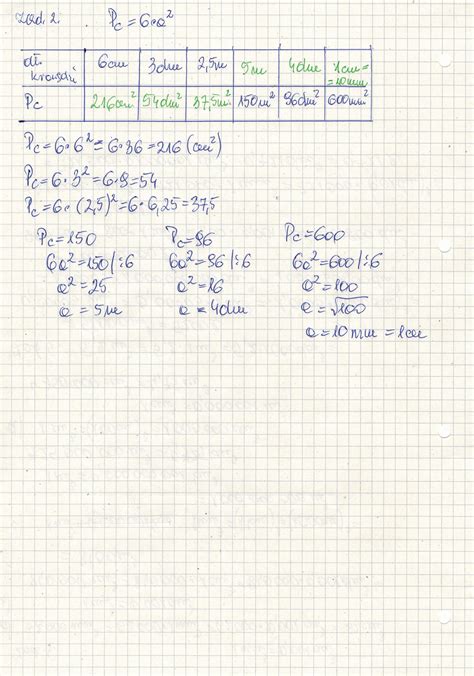 zad. 2. Pc = 6·a²
dł. krawędzi 6cm 3dm 2,5m 5m 4dm 1cm = = 10mm
Pc 216cm² 54dm² 37,5m² 150m² 96dm² 600mm²
Pc = 6·6² = 6·36 = 216 (cm²)
Pc = 6·3² = 6·9 = 54
Pc = 6·(2,5)² = 6·6,25 = 37,5
Pc = 150 Pc = 96 Pc = 600
6a² = 150 /:6 6a² = 96 /:6 6a² = 600 /:6
a² = 25 a² = 16 a² = 100
a = 5m a = 4dm a = √100
a = 10mm = 1cm